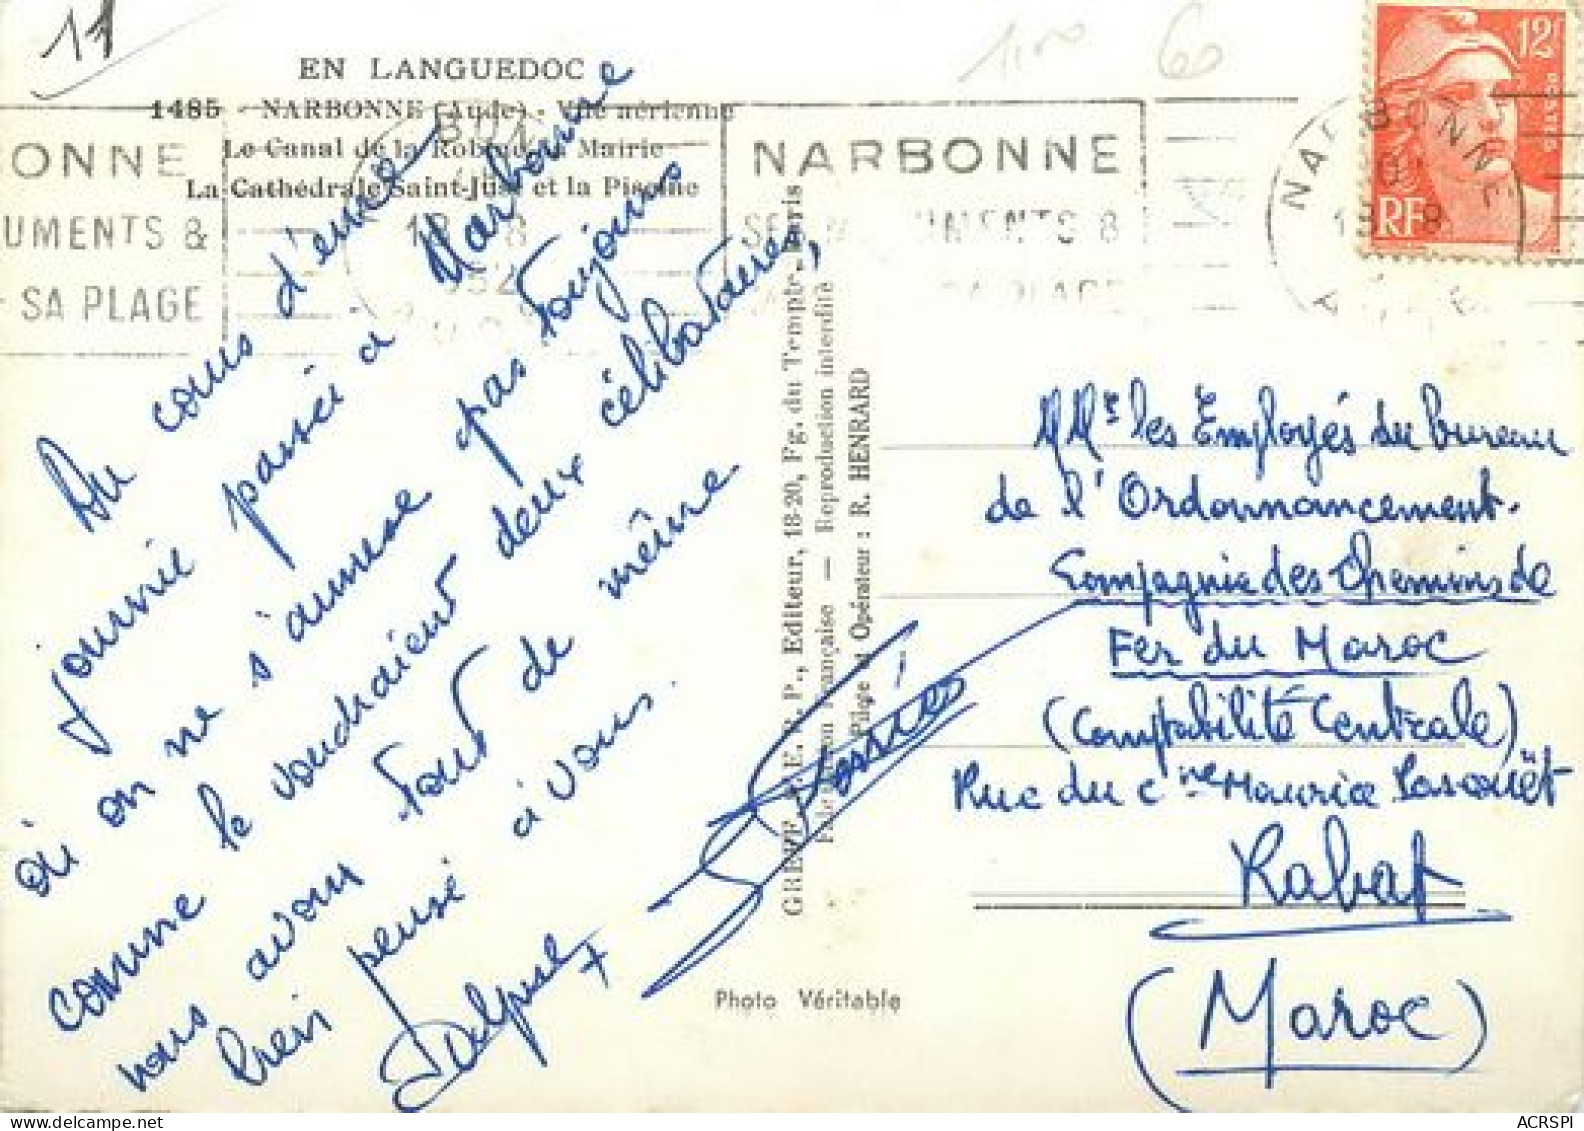 11
EN LANGUEDOC
1485 - NARBONNE (Aude) - Vue aérienne
Le Canal de la Robine, la Mairie
La Cathédrale Saint-Just et la Piscine
ONNE
UMENTS &
SA PLAGE
NARBONNE
MENTS &
NARBONNE
AUDE
12F
POSTES
RF
Au cours d'une
journée passée à Narbonne
où on ne s'amuse pas toujours
comme le voudraient deux célibataires,
nous avons tout de même
bien pensé à vous.
GREFF, S.E.R.P., Editeur, 18-20, Fg. du Temple, Paris
Fabrication Française — Reproduction interdite
Pilote et Opérateur : R. HENRARD
Photo Véritable
MMrs les Employés du bureau
de l'Ordonnancement.
Compagnie des Chemins de
Fer du Maroc
(Comptabilité Centrale)
Rue du Cne Maurice
Rabat
(Maroc)
ACRSPI